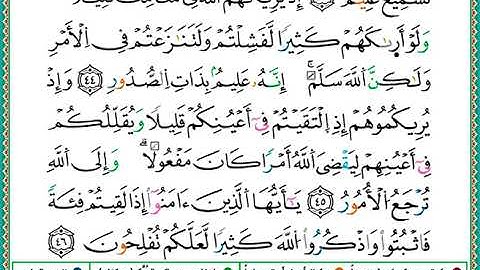 لَسَمِيعٌ عَلِيمٌ إِذْ يُرِيكَهُمُ ٱللَّهُ فِى مَنَامِكَ قَلِيلًا
وَلَوْ أَرَىٰكَهُمْ كَثِيرًا لَّفَشِلْتُمْ وَلَتَنَٰزَعْتُمْ فِى ٱلْأَمْرِ
وَلَٰكِنَّ ٱللَّهَ سَلَّمَ ۗ إِنَّهُۥ عَلِيمٌۢ بِذَاتِ ٱلصُّدُورِ ٤٤ وَإِذْ
يُرِيكُمُوهُمْ إِذِ ٱلْتَقَيْتُمْ فِىٓ أَعْيُنِكُمْ قَلِيلًا وَيُقَلِّلُكُمْ
فِىٓ أَعْيُنِهِمْ لِيَقْضِىَ ٱللَّهُ أَمْرًا كَانَ مَفْعُولًا ۗ وَإِلَى ٱللَّهِ
تُرْجَعُ ٱلْأُمُورُ ٤٥ يَٰٓأَيُّهَا ٱلَّذِينَ ءَامَنُوٓا۟ إِذَا لَقِيتُمْ فِئَةً
فَٱثْبُتُوا۟ وَٱذْكُرُوا۟ ٱللَّهَ كَثِيرًا لَّعَلَّكُمْ تُفْلِحُونَ ٤٦